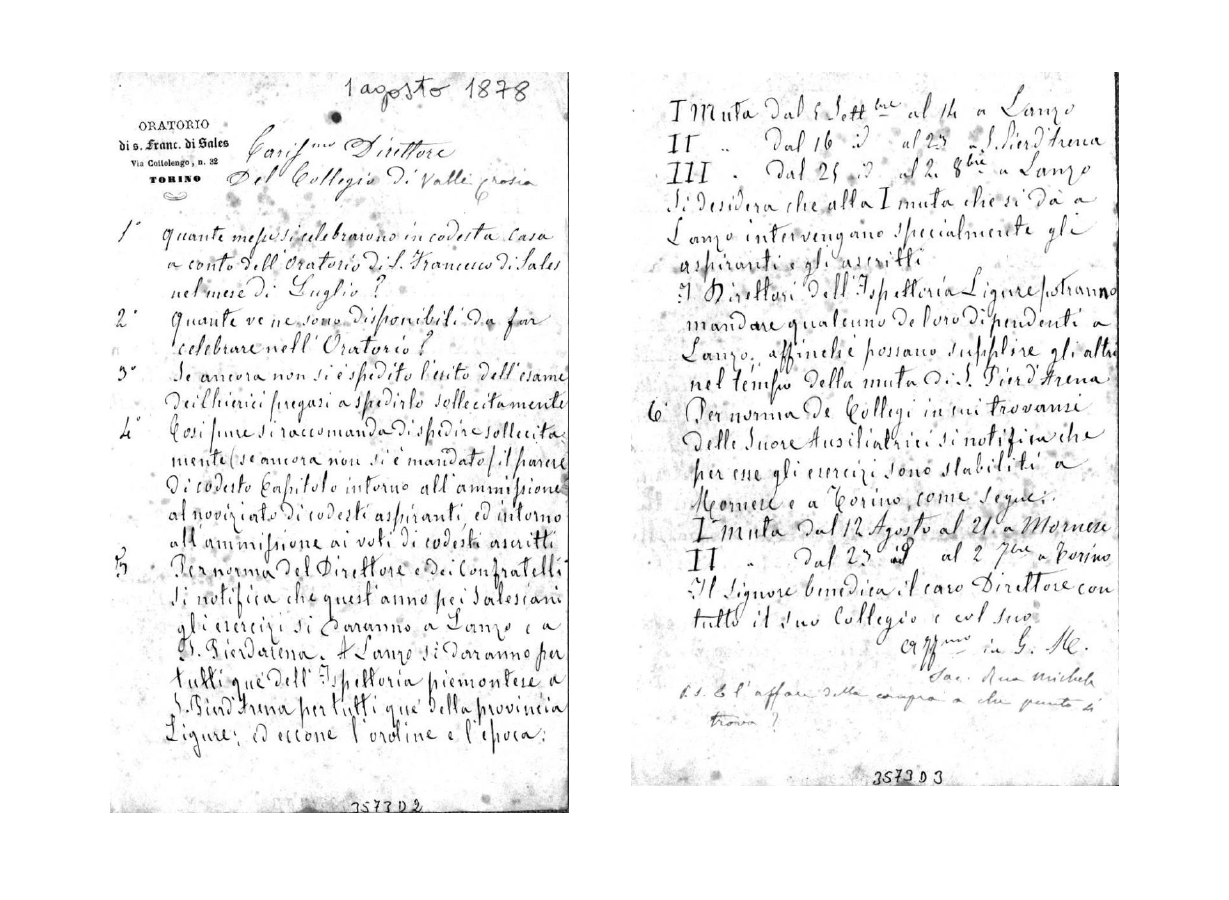 1 agosto 1878
ORATORIO
di s. Franc. di Sales
Via Cottolengo, n. 32
TORINO
Cariss.mo Direttore
Del Collegio di Valle crosia
1° Quante messe si celebrarono in codesta casa
a conto dell'Oratorio di S. Francesco di Sales
nel mese di Luglio?
2° Quante ve ne sono disponibili da far
celebrare nell'Oratorio?
3° Se ancora non si è spedito l'esito dell'esame
dei chierici pregasi a spedirlo sollecitamente
4° Così pure si raccomanda di spedire sollecita-
mente (se ancora non si è mandato) il parere
di codesto Capitolo intorno all'ammissione
al noviziato di codesti aspiranti, ed intorno
all'ammissione ai voti di codesti ascritti
5 Per norma del Direttore e dei Confratelli
si notifica che quest'anno pei Salesiani
gli esercizi si daranno a Lanzo e a
S. Pierdarena. A Lanzo si daranno per
tutti que' dell'Ispettoria piemontese a
S. Pierd'Arena per tutti que' della provincia
Ligure; ed eccone l'ordine e l'epoca:
3573 D 2
I Muta dal 5 Sett.bre al 14 a Lanzo
II " dal 16 id al 23 a S. Pierd'Arena
III " dal 25 id al 2. 8bre a Lanzo
Si desidera che alla I muta che si dà a
Lanzo intervengano specialmente gli
aspiranti e gli ascritti
I Direttori dell'Ispettoria Ligure potranno
mandare qualcuno de loro dipendenti a
Lanzo, affinchè possano supplire gli altri
nel tempo della muta di S. Pierd'Arena
6° Per norma de Collegi in cui trovansi
delle Suore Ausiliatrici si notifica che
per esse gli esercizi sono stabiliti a
Mornese e a Torino, come segue:
I muta dal 12 Agosto al 21. a Mornese
II " dal 23 id al 2 7bre a Torino
Il Signore benedica il caro Direttore con
tutto il suo Collegio e col suo
aff.mo in G. M.
Sac. Rua Michele
P.S. E l'affare della compra a che punto si
trova?
3573 D 3